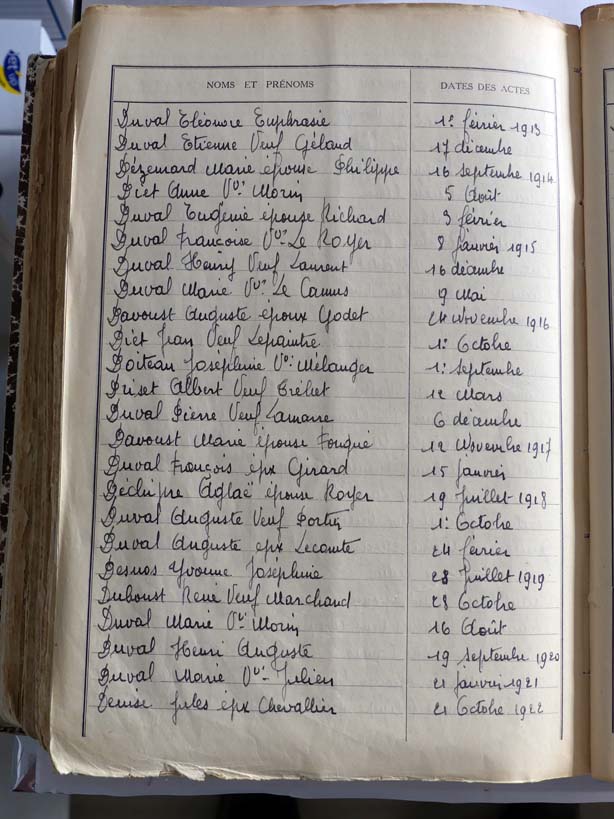 NOMS ET PRÉNOMS DATES DES ACTES
Duval Eléonore Euphrasie 1er février 1913
Duval Etienne Veuf Géland 17 décembre
Dézemard Marie épouse Philippe 16 septembre 1914
Diet Anne Vve Morin 5 Août
Duval Eugénie épouse Richard 3 février
Duval Françoise Vve Le Royer 8 Janvier 1915
Duval Henry Veuf Laurent 16 décembre
Duval Marie Vve Le Camus 9 Mai
Davoust Auguste époux Godet 24 Novembre 1916
Diet Jean Veuf Lepaintre 1er Octobre
Doiteau Joséphine Vve Mélanger 1er Septembre
Driset Albert Veuf Tréhet 12 Mars
Duval Pierre Veuf Lamarre 6 décembre
Davoust Marie épouse Fouqué 12 Novembre 1917
Duval François épx Girard 15 Janvier
Aglaë épouse Royer 19 Juillet 1918
Duval Auguste Veuf 1er Octobre
Duval Auguste epx Lecomte 24 février
Desnos Yvonne Joséphine 28 Juillet 1919
Duboust René Veuf Marchand 28 Octobre
Duval Marie Vve Morin 16 Août
Duval Henri Auguste 19 septembre 1920
Duval Marie Vve Julien 21 Janvier 1921
Denise Jules épx Chevallier 21 Octobre 1922